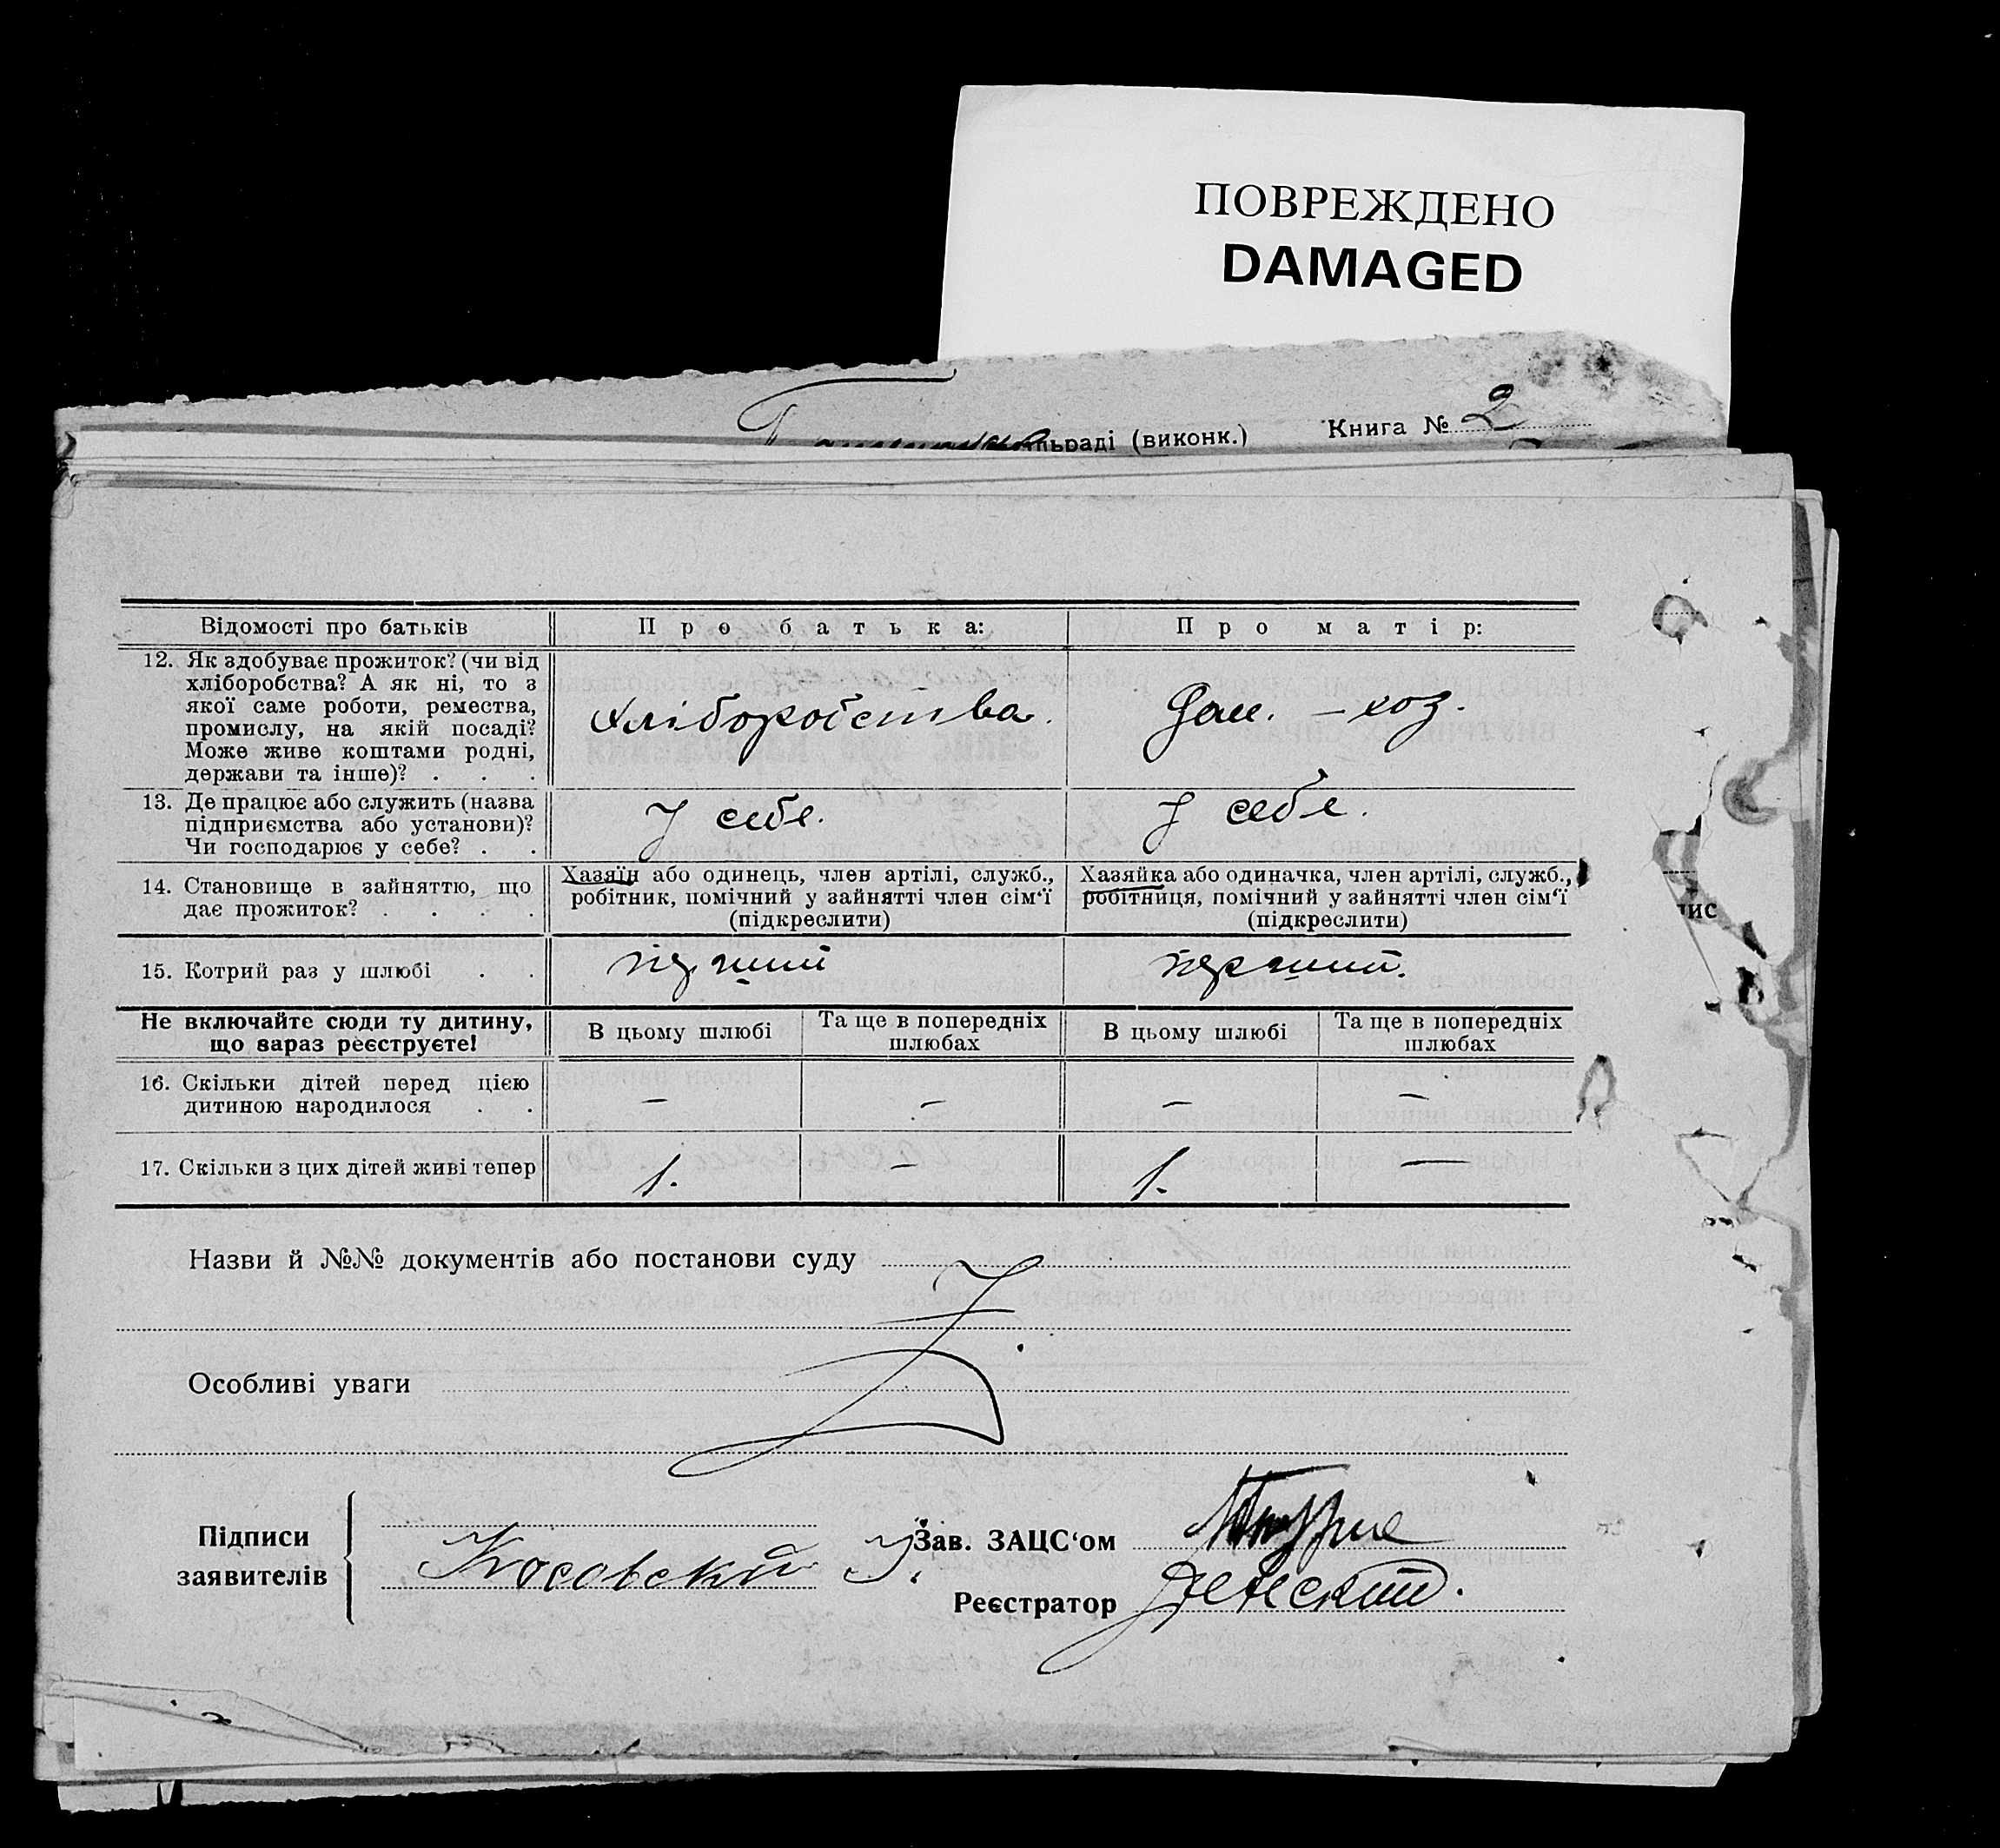 ПОВРЕЖДЕНО
DAMAGED
льраді (виконк.) Книга № 2
Відомості про батьків Про батька: Про матір:
12. Як здобуває прожиток? (чи від
хліборобства? А як ні, то з
якої саме роботи, ремества,
промислу, на якій посаді?
Може живе коштами родні,
держави та інше)? . . .
хліборобства. Дом. – хоз.
13. Де працює або служить (назва
підприємства або установи)?
Чи господарює у себе? . .
У себе. У себе.
14. Становище в зайняттю, що
дає прожиток? . . . .
Хазяїн або одинець, член артілі, служб.,
робітник, помічний у зайнятті член сім‘ї
(підкреслити)
Хазяйка або одиначка, член артілі, служб.,
робітниця, помічний у зайнятті член сім‘ї
(підкреслити)
пис
15. Котрий раз у шлюбі . . перший перший.
Не включайте сюди ту дитину,
що зараз реєструєте!
В цьому шлюбі Та ще в попередніх
шлюбах
В цьому шлюбі Та ще в попередніх
шлюбах
16. Скільки дітей перед цією
дитиною народилося . .
– – – –
17. Скільки з цих дітей живі тепер 1. – 1. –
Назви й №№ документів або постанови суду
Особливі уваги
Підписи
заявителів
Косовский У.
Зав. ЗАЦС‘ом
Реєстратор